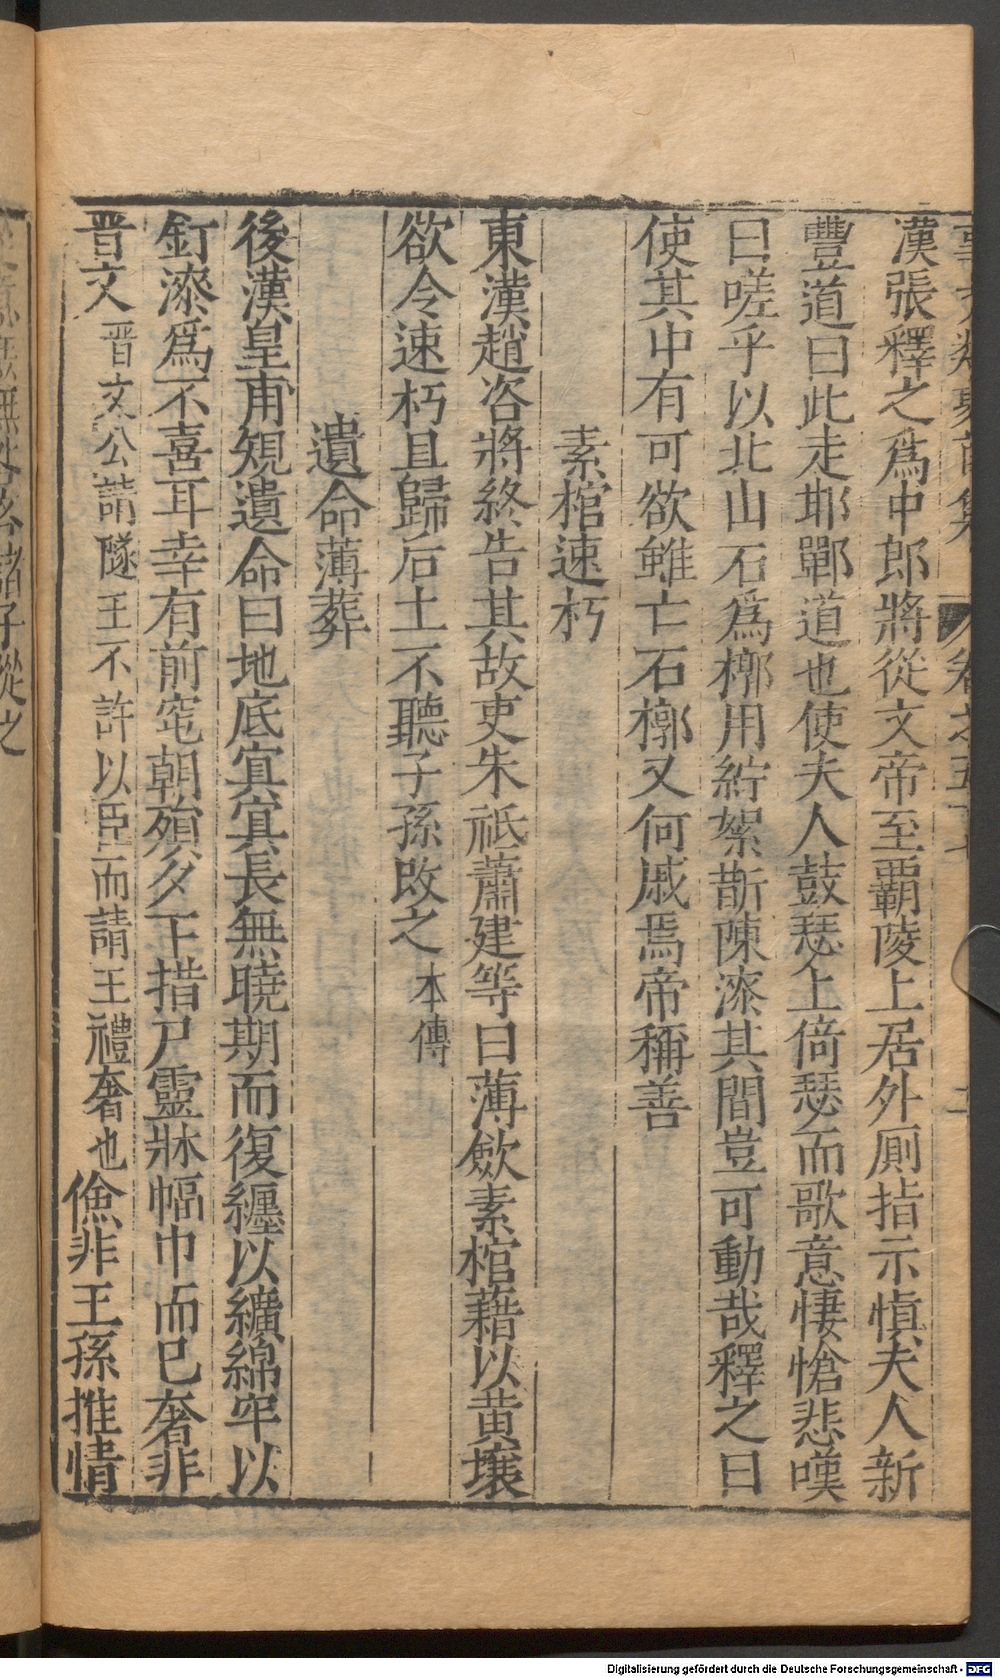 漢張釋之爲中郎將從文帝至覇陵上居外厠指示慎夫人新
豐道曰此走邯鄲道也使夫人鼓瑟上倚瑟而歌意悽愴悲嘆
曰嗟乎以北山石爲槨用紵絮斮陳漆其間豈可動哉釋之曰
使其中有可欲雖亡石槨又何戚焉帝稱善
素棺速朽
東漢趙咨將終告其故吏朱祗蕭建等曰薄歛素棺藉以黄壤
欲令速朽且歸后土不聽子孫改之本傳
遺命薄葬
後漢皇甫規遺命曰地底㝠㝠長無曉期而復纏以纊綿牢以
釘漆爲不喜耳幸有前窀朝殞夕下措尸靈牀幅巾而已奢非
晋文晋文公請隧王不許以臣而請王禮奢也儉非王孫推情
諸子從之
Digitalisierung gefördert durch die Deutsche Forschungsgemeinschaft - DFG